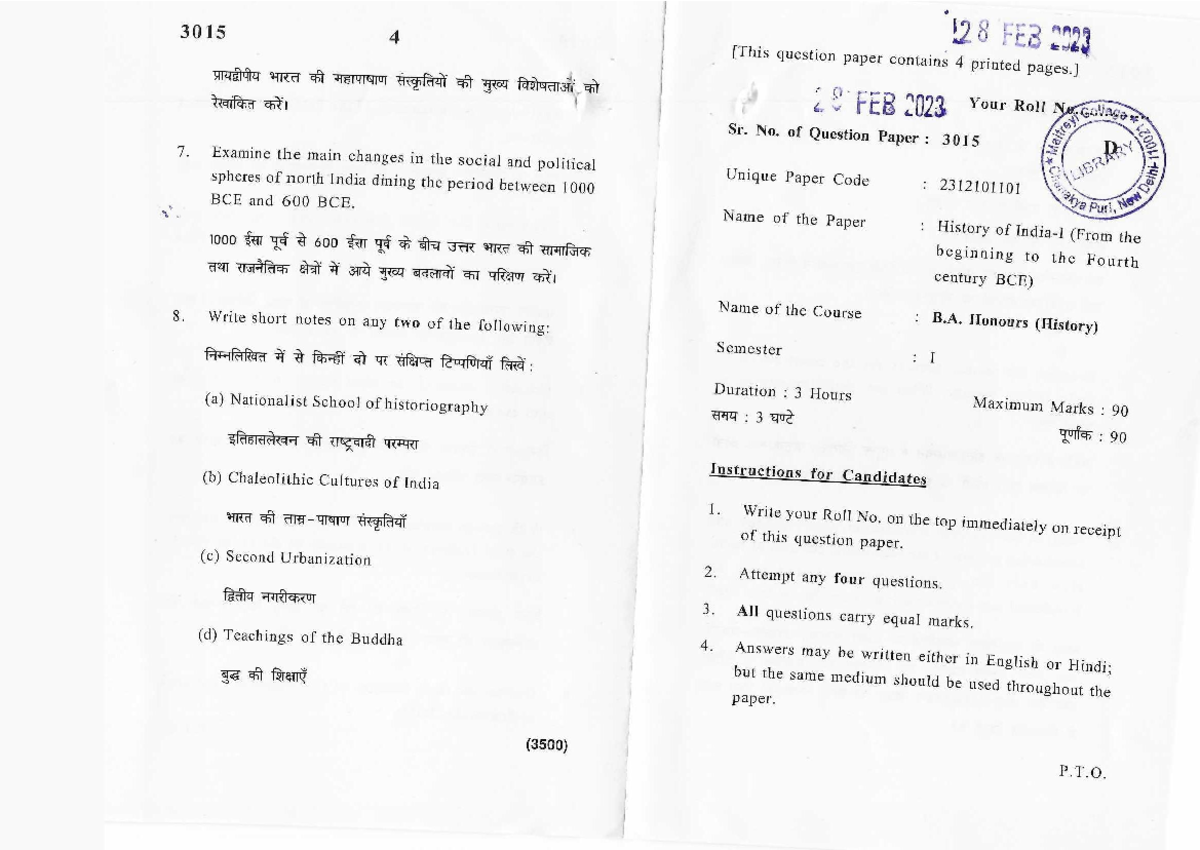 3015
4
प्रायद्वीपीय भारत की महापाषाण संस्कृतियों की मुख्य विशेषताओं को
रेखांकित करें।
7. Examine the main changes in the social and political
spheres of north India dining the period between 1000
BCE and 600 BCE.
1000 ईसा पूर्व से 600 ईसा पूर्व के बीच उत्तर भारत की सामाजिक
तथा राजनैतिक क्षेत्रों में आये मुख्य बदलावों का परिक्षण करें।
8. Write short notes on any two of the following:
निम्नलिखित में से किन्हीं दो पर संक्षिप्त टिप्पणियाँ लिखें :
(a) Nationalist School of historiography
इतिहासलेखन की राष्ट्रवादी परम्परा
(b) Chaleolithic Cultures of India
भारत की ताम्र-पाषाण संस्कृतियाँ
(c) Second Urbanization
द्वितीय नगरीकरण
(d) Teachings of the Buddha
बुद्ध की शिक्षाएँ
(3500)
28 FEB 2023
[This question paper contains 4 printed pages.]
28 FEB 2023
Your Roll No.
Maitreyi College
LIBRARY
Chanakya Puri, New Delhi-110021
D
Sr. No. of Question Paper : 3015
Unique Paper Code : 2312101101
Name of the Paper : History of India-I (From the
beginning to the Fourth
century BCE)
Name of the Course : B.A. Honours (History)
Semester : I
Duration : 3 Hours
Maximum Marks : 90
समय : 3 घण्टे
पूर्णांक : 90
Instructions for Candidates
1. Write your Roll No. on the top immediately on receipt
of this question paper.
2. Attempt any four questions.
3. All questions carry equal marks.
4. Answers may be written either in English or Hindi;
but the same medium should be used throughout the
paper.
P.T.O.